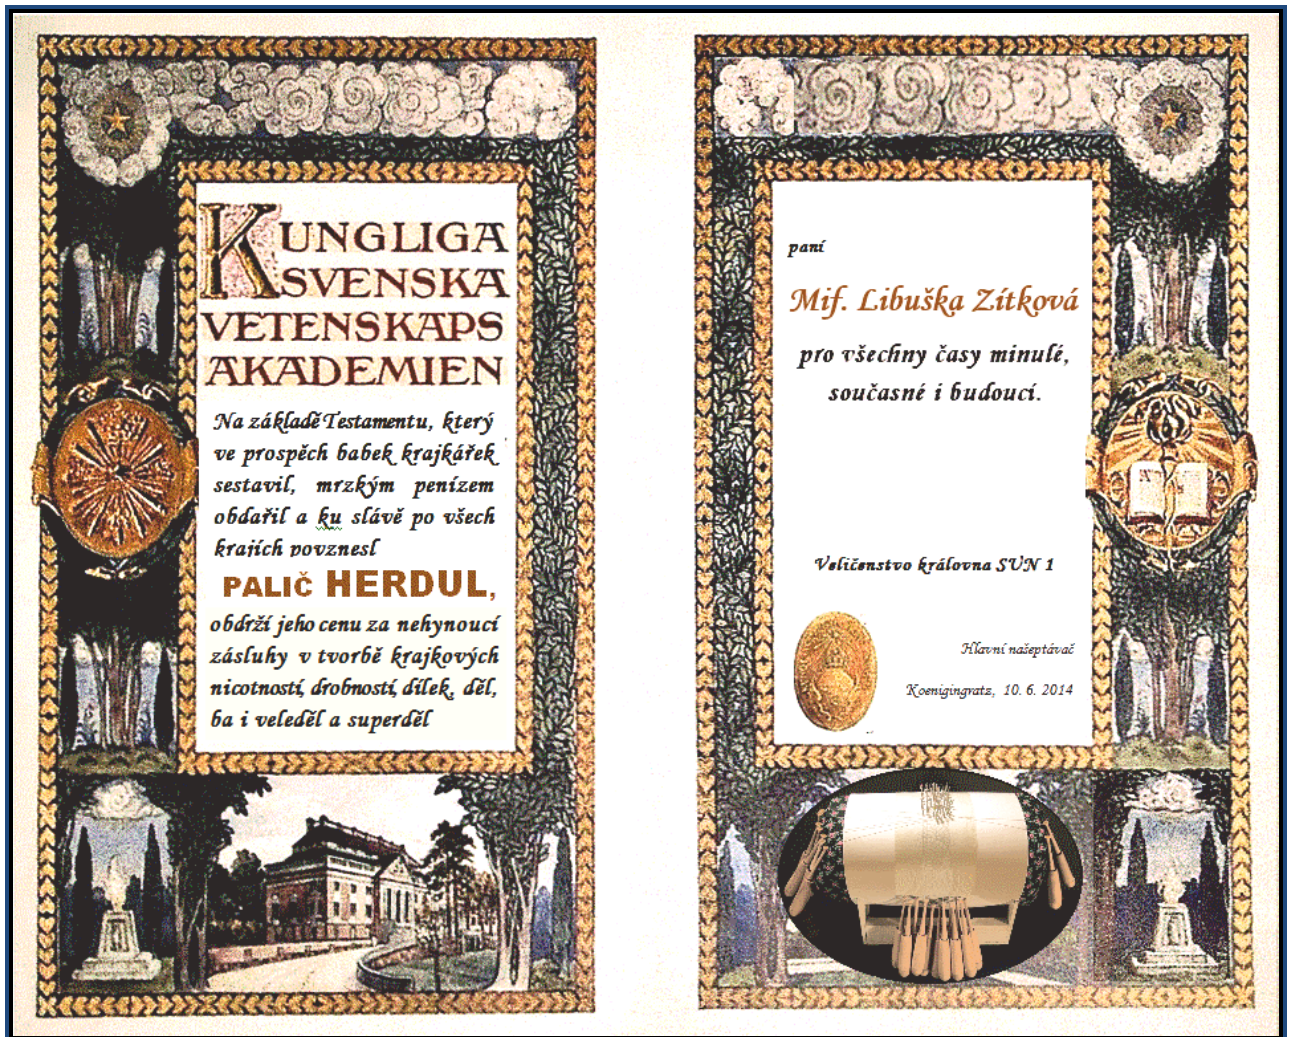 KUNGLIGA
SVENSKA
VETENSKAPS
AKADEMIEN
Na základě Testamentu, který
ve prospěch babek krajkářek
sestavil, mrzkým penízem
obdařil a ku slávě po všech
krajích povznesl
PALIČ HERDUL,
obdrží jeho cenu za nehynoucí
zásluhy v tvorbě krajkových
nicotností, drobností, dílek, děl,
ba i veleděl a superděl
paní
Mif. Libuška Zítková
pro všechny časy minulé,
současné i budoucí.
Veličenstvo královna SUN 1
Hlavní našeptávač
Koenigingratz, 10. 6. 2014